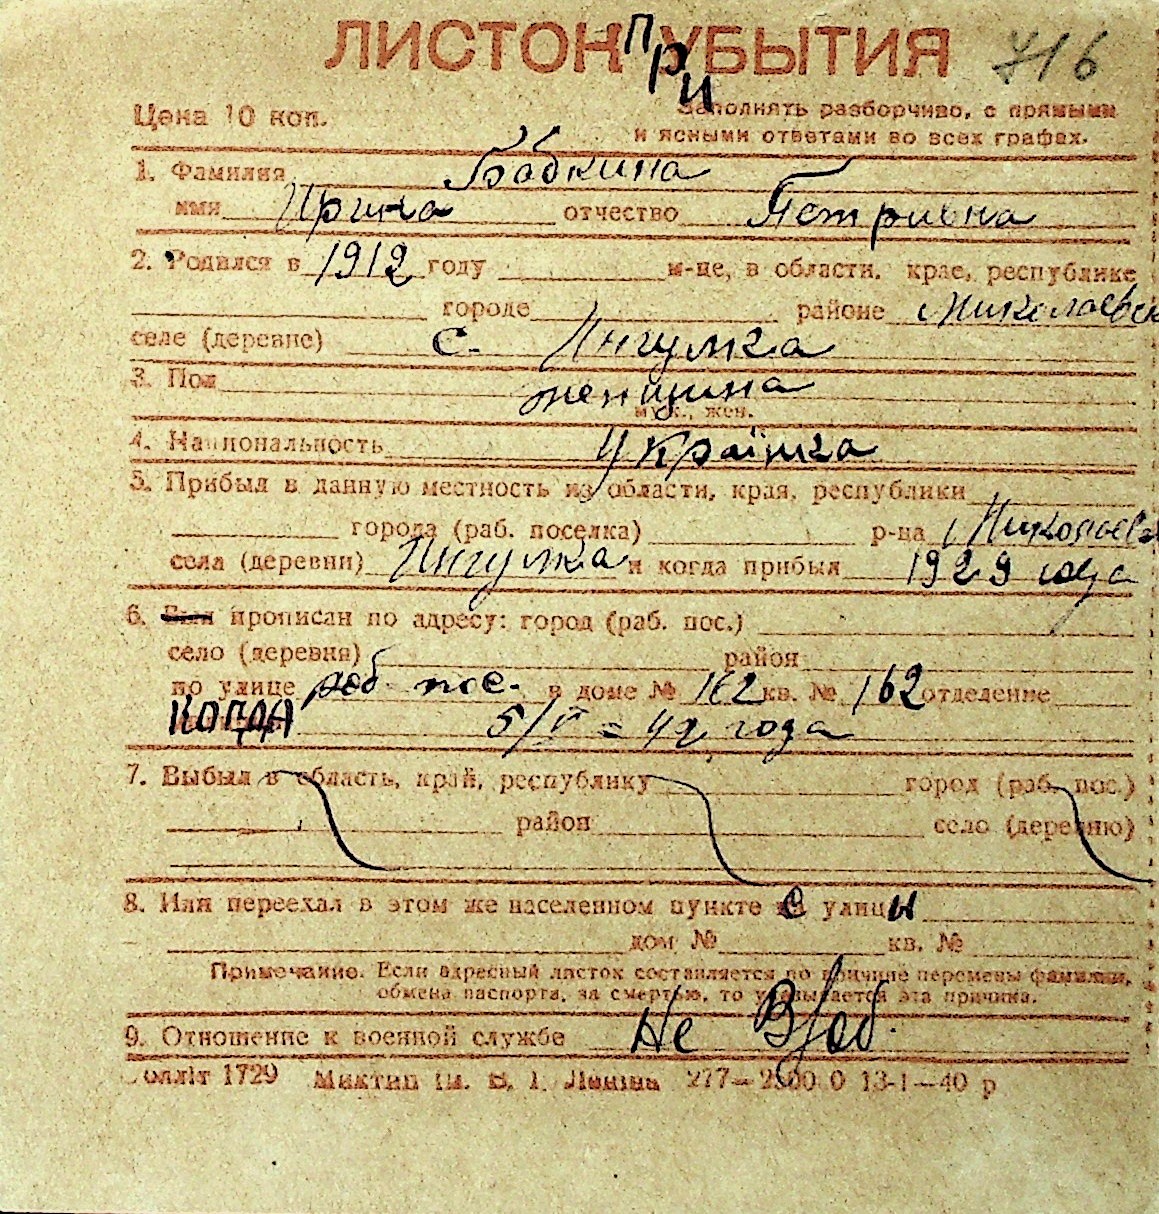 ЛИСТОК ПРИ УБЫТИЯ 716
Цена 10 коп.
Заполнять разборчиво, с прямыми
и ясными ответами во всех графах.
1. Фамилия Бабкина
имя Ирина отчество Петривна
2. Родился в 1912 году м-це, в области, крае, республике
городе районе Николаевск
селе (деревне) с. Ингулка
3. Пол женщина
муж., жен.
4. Национальность Українка
5. Прибыл в данную местность из области, края, республики
города (раб. поселка) р-на Николаевс
села (деревни) Ингулка и когда прибыл 1929 года
6. Был прописан по адресу: город (раб. пос.)
село (деревня) район
по улице раб. пос. в доме № 162 кв. № 162 отделение
КОГДА 5/V = 42 года
7. Выбыл в область, край, республику город (раб. пос.)
район село (деревню)
8. Или переехал в этом же населенном пункте с улицы
дом № кв. №
Примечание. Если адресный листок составляется по причине перемены фамилии,
обмена паспорта, за смертью, то указывается эта причина.
9. Отношение к военной службе Не
олліт 1729 Миктип ім. В. І. Леніна 277—2500 0 13-I—40 р